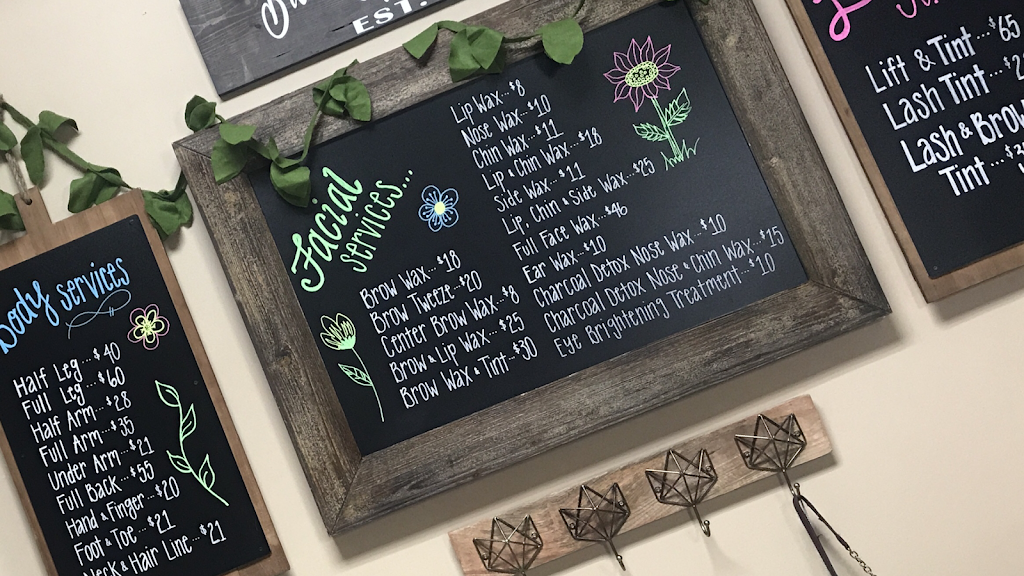 EST.
Body services
Half Leg...$40
Full Leg...$60
Half Arm...$28
Full Arm...$35
Under Arm...$21
Full Back...$55
Hand & Finger...$20
Foot & Toe...$21
Neck & Hair Line...$21
Facial
services...
Brow Wax...$18
Brow Tweze...$20
Center Brow Wax...$8
Brow & Lip Wax...$25
Brow Wax & Tint...$30
Lip Wax...$8
Nose Wax...$10
Chin Wax...$11
Lip & Chin Wax...$18
Side Wax...$11
Lip, Chin & Side Wax...$25
Full Face Wax...$46
Ear Wax...$10
Charcoal Detox Nose Wax...$10
Charcoal Detox Nose & Chin Wax...$15
Eye Brightening Treatment...$10
Lift & Tint...$65
Lash Tint...
Lash & Brow
Tint...